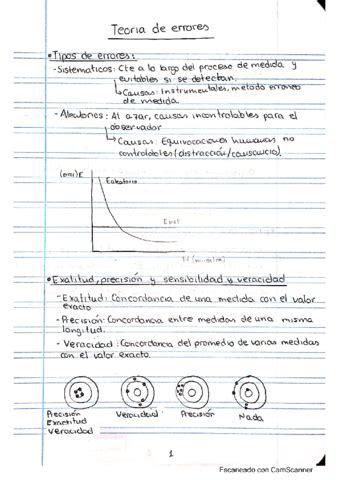 Teoria de errores
• Tipos de errores:
- Sistematicos: Cte a lo largo del proceso de medida y
evitables si se detectan.
↳ Causas: Instrumentales, metodo erroneo
de medida.
- Aleatorios: Al azar, causas incontrolables para el
observador
↳ Causas: Equivocaciones humanas no
controlables (distracción/causancio)
E
Ealeatorio
• Exatitud, precisión y sensibilidad y veracidad
- Exatitud: Concordancia de una medida con el valor
exacto.
- Precisión: Concordancia entre medidas de una misma
longitud.
- Veracidad: Concordancia del promedio de varias medidas
con el valor exacto.
Precisión Veracidad Precisión Nada
Exactitud
Veracidad
1
Escaneado con CamScanner